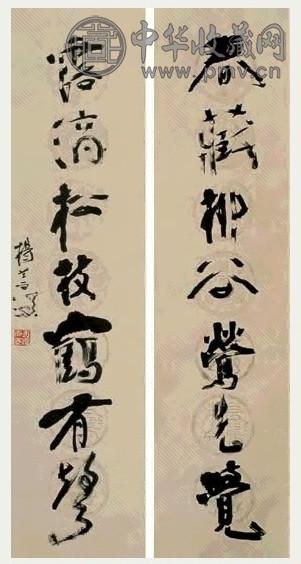 中华收藏网
www.pmv.cn
春藏柳谷莺先觉
露滴松枝鹤有声